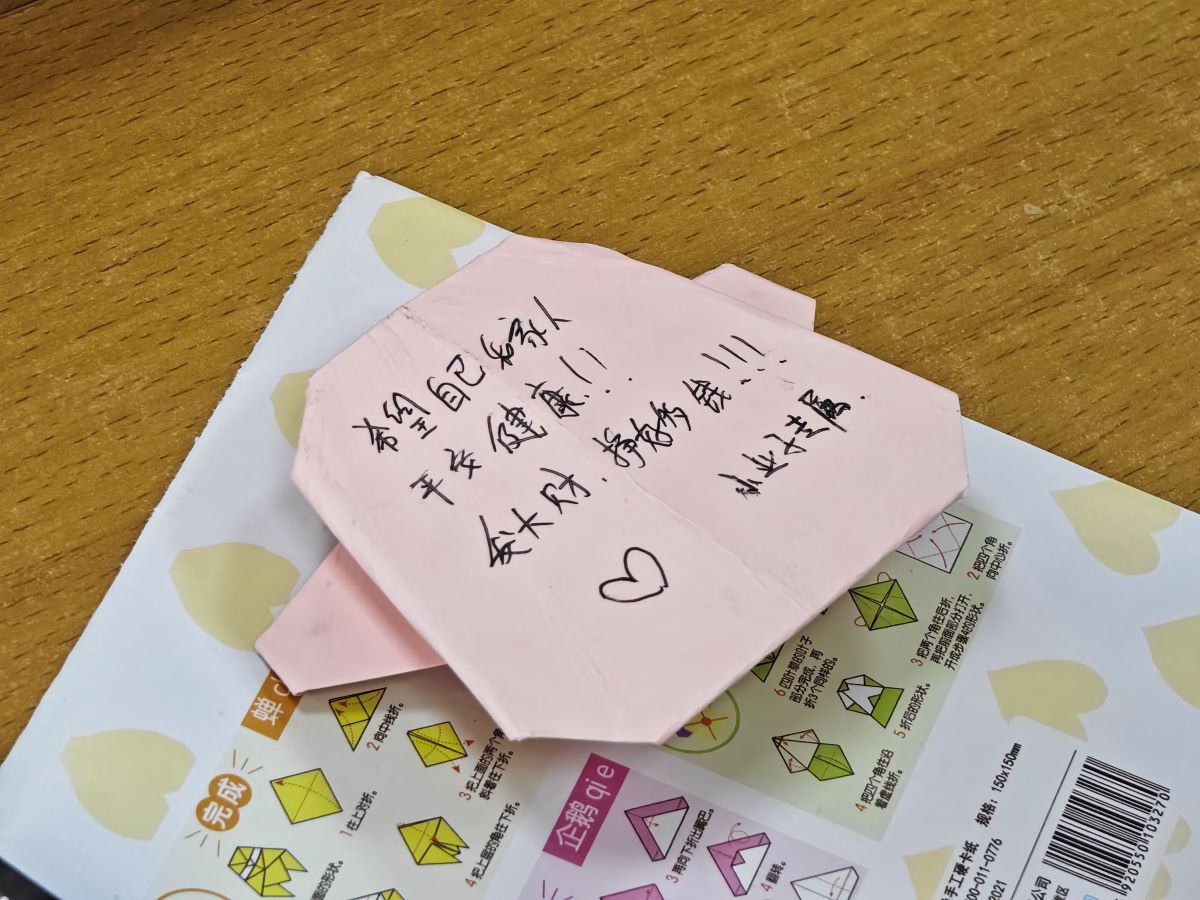 希望自己和家人
平安健康!!
发大财.挣好多钱!!!!
小业子专属.
蝉
完成
1 往上对折。
2 向中线折。
3 把上面的两个角
斜着往下折。
4 把上层的角往下折。
面的形状。
企鹅 qie
3 再向下折出嘴巴。
4 翻转。
2 把四个角
向中心折。
3 把两个角往后折，
再把前面部分打开，
开成步骤4的形状。
4 把四个角往沿
着虚线折。
5 折后的形状。
6 四叶草的叶子
部分完成，再
折3个同样的。
手工硬卡纸 规格：150x150mm
00-011-0776
2021
公司
920550103270